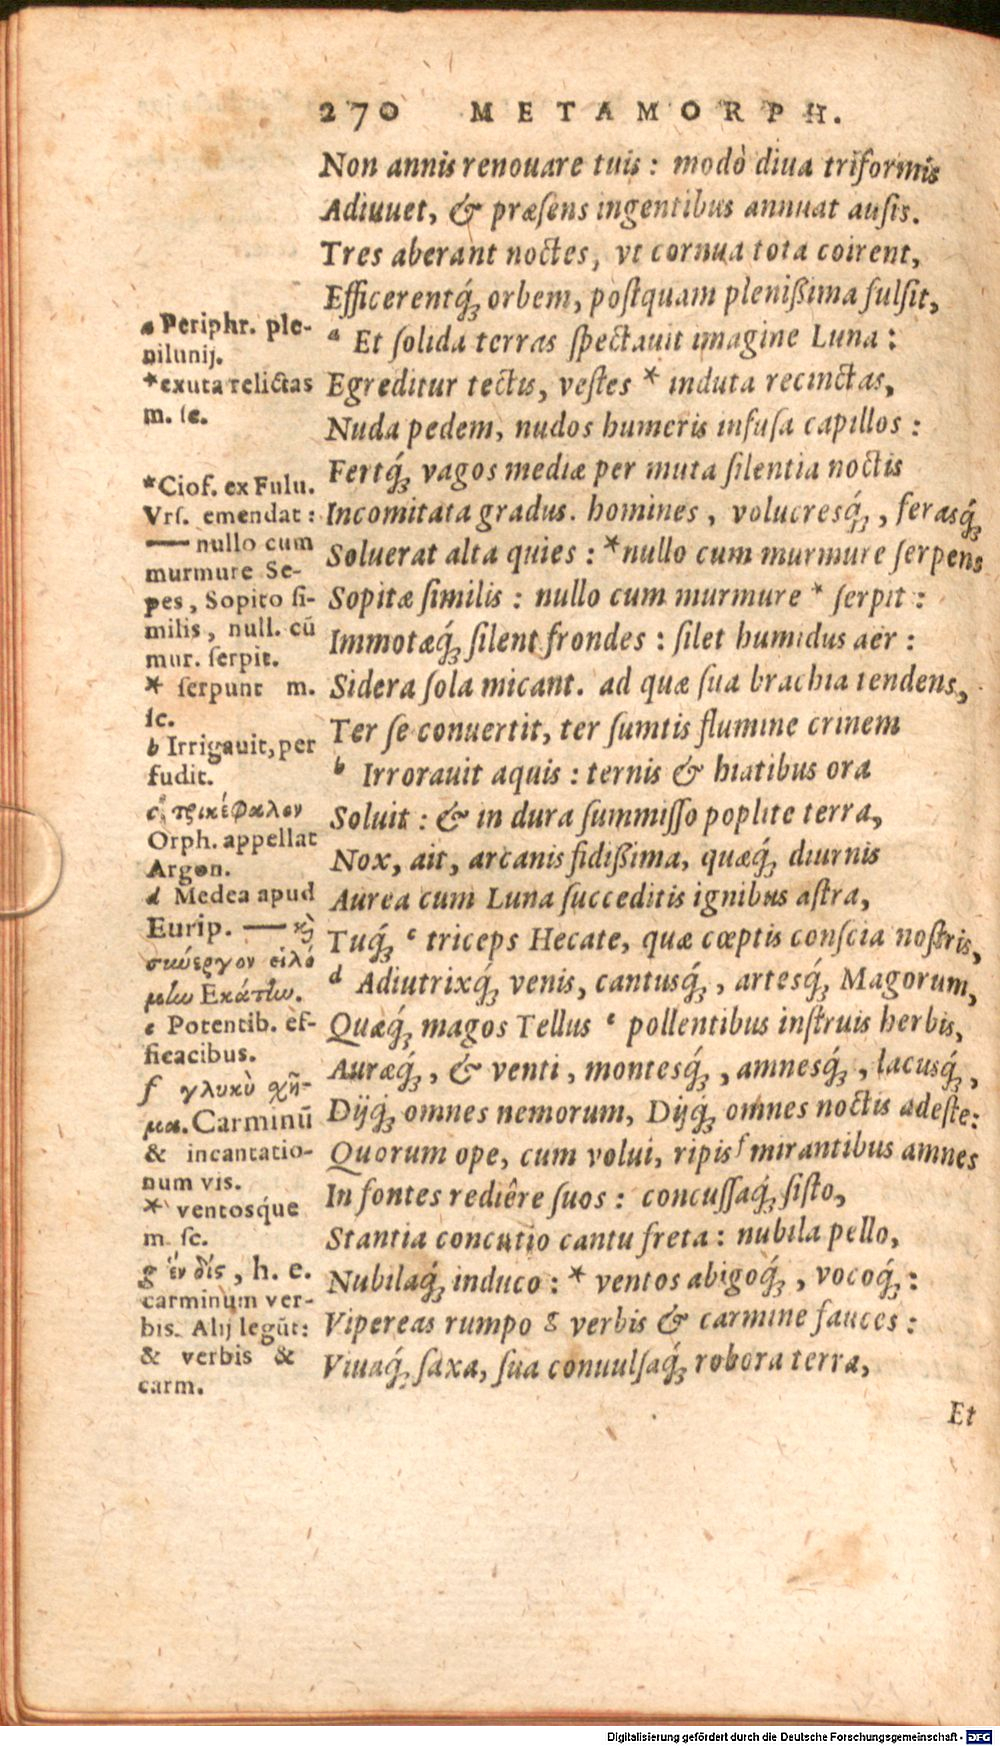 270 METAMORPH.
Non annis renouare tuis : modò diua triformis
Adiuuet, & præſens ingentibus annuat auſis.
Tres aberant noctes, vt cornua tota coirent,
Efficerentq́; orbem, poſtquam plenißima fulſit,
a Et ſolida terras ſpectauit imagine Luna :
Egreditur tectis, veſtes * induta recinctas,
Nuda pedem, nudos humeris infuſa capillos :
Fertq́; vagos mediæ per muta ſilentia noctis
Incomitata gradus. homines , volucresq́; , ferasq́;
Soluerat alta quies : * nullo cum murmure ſerpens
Sopitæ ſimilis : nullo cum murmure * ſerpit :
Immotæq́; ſilent frondes : ſilet humidus aër :
Sidera ſola micant. ad quæ ſua brachia tendens,
Ter ſe conuertit, ter ſumtis flumine crinem
b Irrorauit aquis : ternis & hiatibus ora
Soluit : & in dura ſummiſſo poplite terra,
Nox, ait, arcanis fidißima, quæq́; diurnis
Aurea cum Luna ſucceditis ignibus aſtra,
Tuq́; c triceps Hecate, quæ cœptis conſcia noſtris,
d Adiutrixq́; venis, cantusq́; , artesq́; Magorum,
Quæq́; magos Tellus e pollentibus inſtruis herbis,
Auræq́; , & venti , montesq́; , amnesq́; , lacusq́; ,
Dijq́; omnes nemorum, Dijq́; omnes noctis adeſte:
Quorum ope, cum volui, ripis f mirantibus amnes
In fontes rediêre ſuos : concuſſaq́; ſiſto,
Stantia concutio cantu freta : nubila pello,
Nubilaq́; induco : * ventos abigoq́; , vocoq́; :
Vipereas rumpo g verbis & carmine fauces :
Viuaq́; ſaxa, ſua conuulſaq́; robora terra,
Et
a Periphr. ple-
nilunij.
*exuta relictas
m. ſc.
*Ciof. ex Fulu.
Vrſ. emendat :
— nullo cum
murmure Se-
pes, Sopito ſi-
milis, null. cū
mur. ſerpit.
* ſerpunt m.
ſc.
b Irrigauit, per
fudit.
c τρικέφαλον
Orph. appellat
Argon.
d Medea apud
Eurip. — καὶ
σκύεργον εἱλό
μην Εκάτην.
e Potentib. ef-
ficacibus.
f γλυκὺ χῆ-
μα. Carminū
& incantatio-
num vis.
* ventosque
m. ſc.
g ἓν δὶς, h. e.
carminum ver-
bis. Alij legūt:
& verbis &
carm.
Digitalisierung gefördert durch die Deutsche Forschungsgemeinschaft - DFG